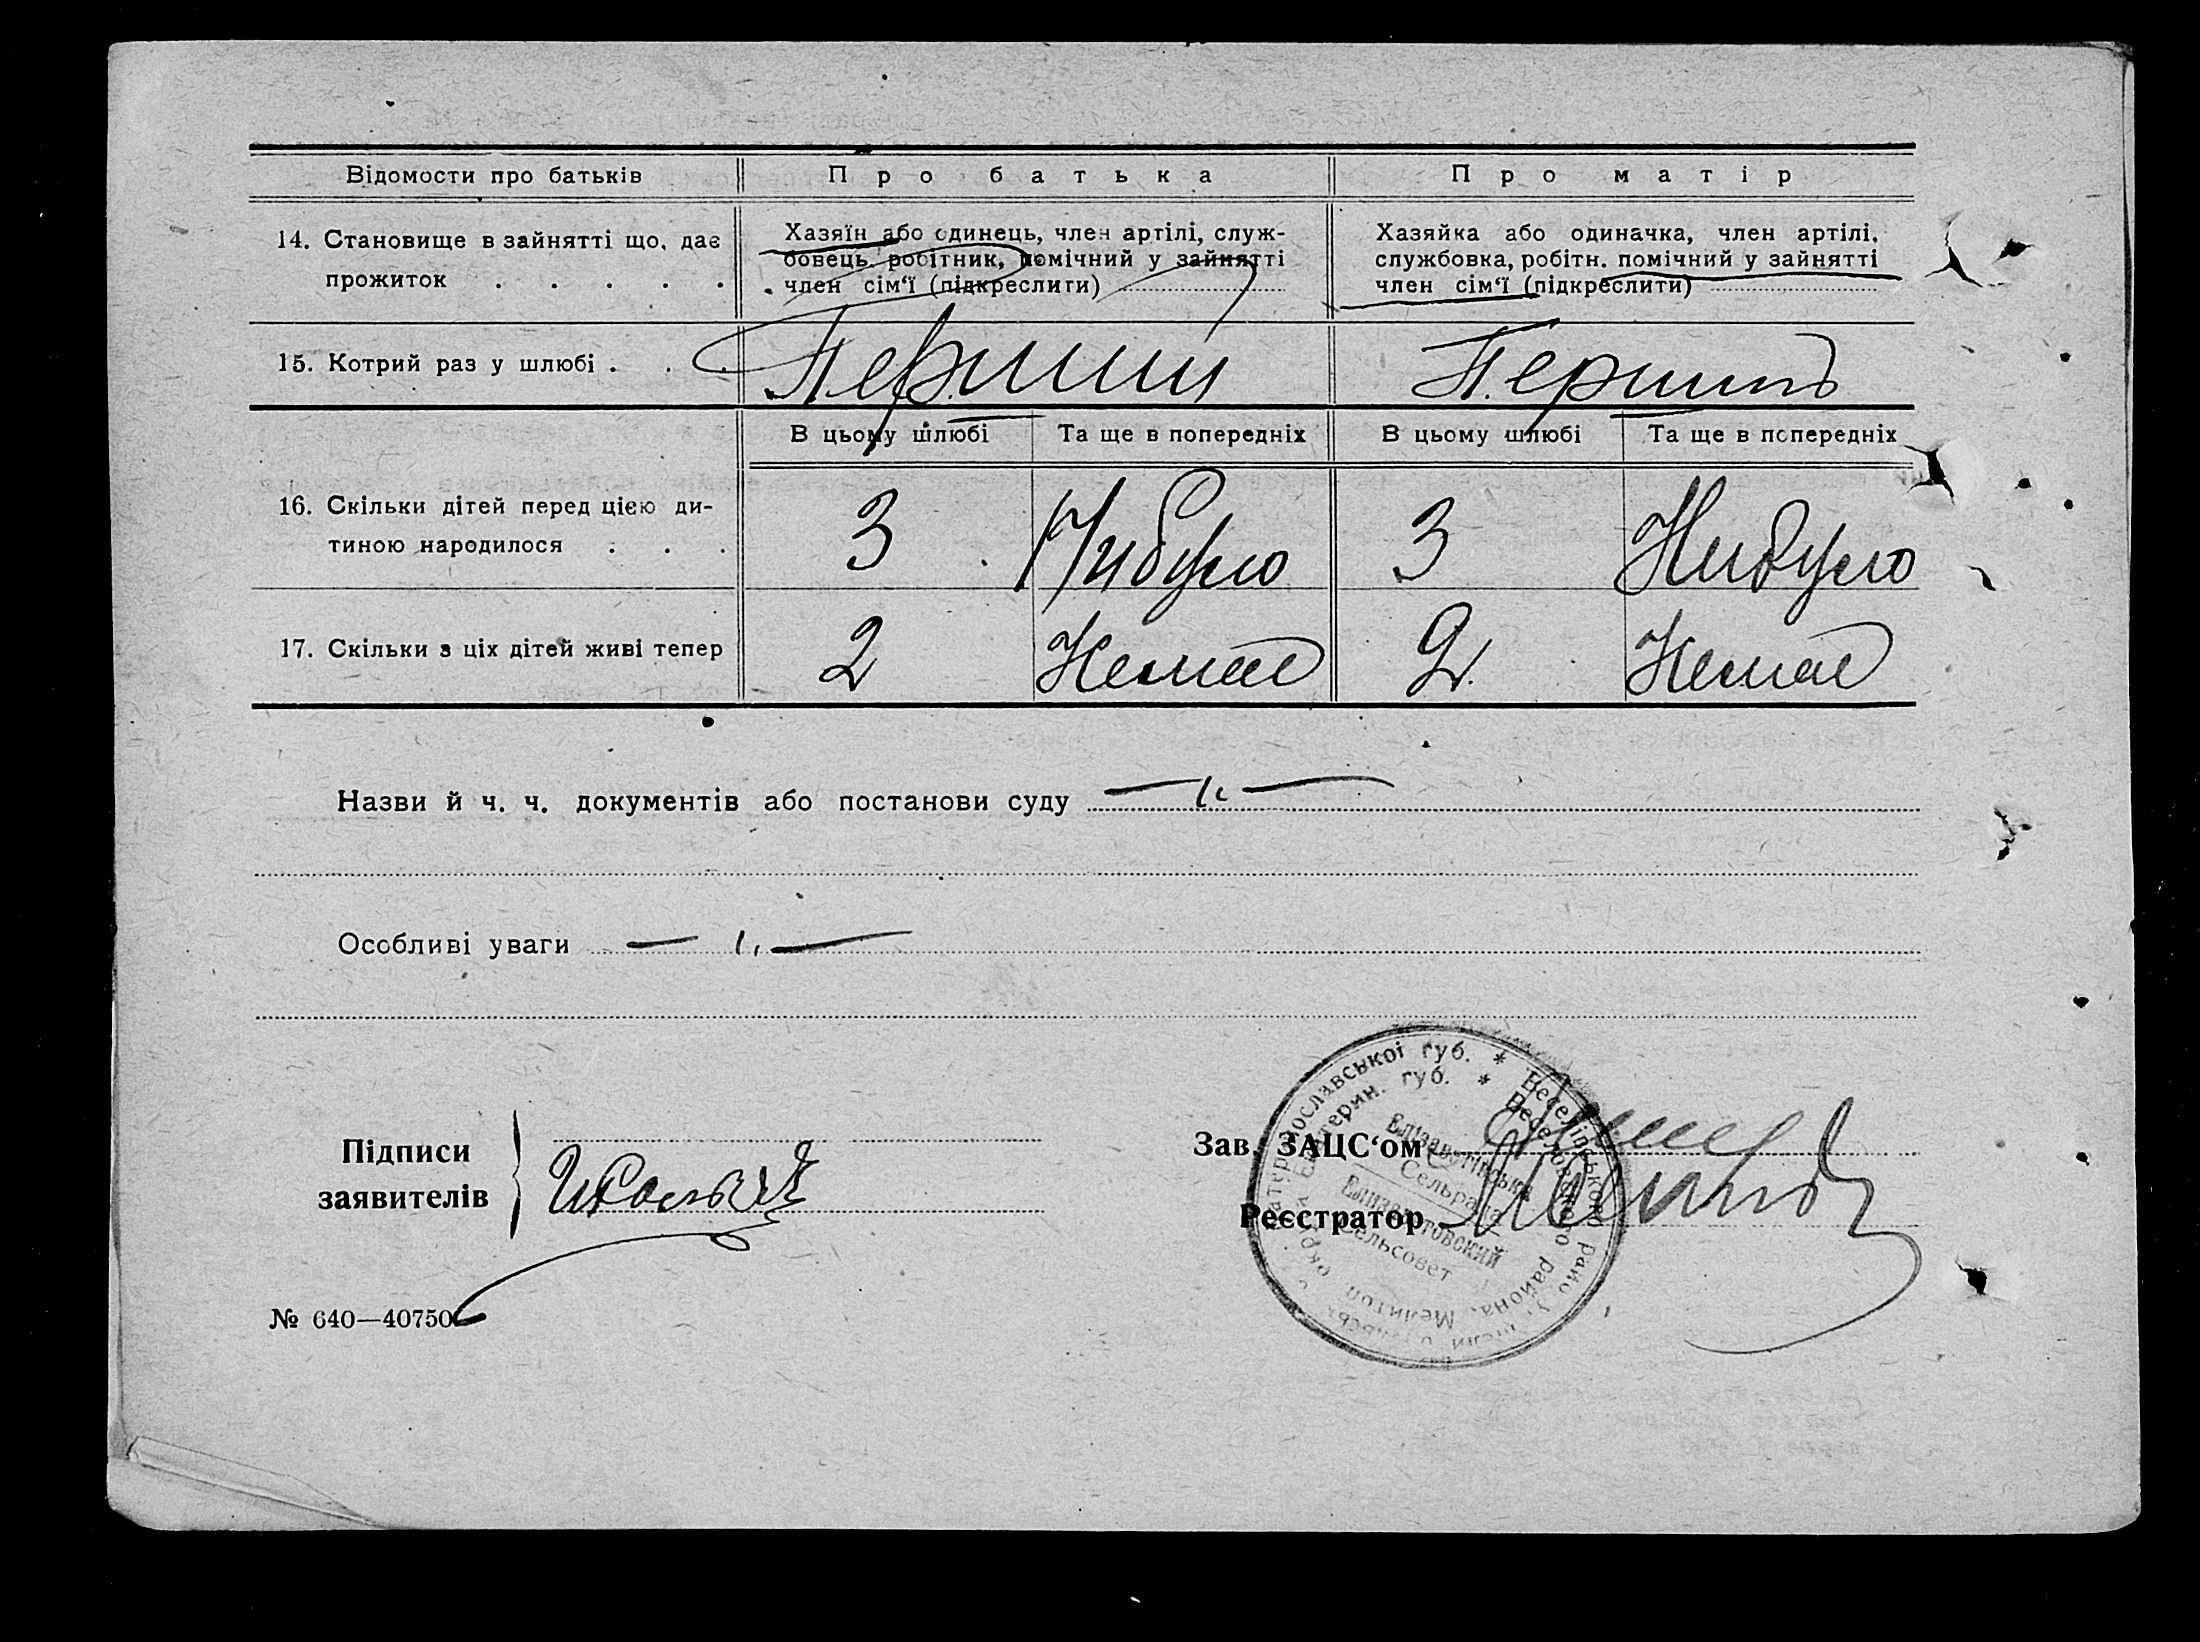 Відомости про батьків Про батька Про матір
14. Становище в зайнятті що, дає прожиток . . . . .
Хазяїн або одинець, член артілі, служ-
бовець робітник, помічний у зайнятті
член сім‘ї (підкреслити)
Хазяйка або одиначка, член артілі,
службовка, робітн. помічний у зайнятті
член сім‘ї (підкреслити)
15. Котрий раз у шлюбі . . . Перший Перший
В цьому шлюбі Та ще в попередніх В цьому шлюбі Та ще в попередніх
16. Скільки дітей перед цією ди-
тиною народилося . . .
3 Нибуло 3 Нибуло
17. Скільки з ціх дітей живі тепер 2 Немає 2 Немає
Назви й ч. ч. документів або постанови суду — 〃 —
Особливі уваги — 〃 —
Підписи
заявителів
Зав. ЗАЦС‘ом
Реєстратор
№ 640—40750
Катеринославської губ. * Веселівського району
Екатерин. губ. * Веселовского района, Мелитоп. окр.
Єлізаветівська
Сельрада
Елизаветовский
Сельсовет